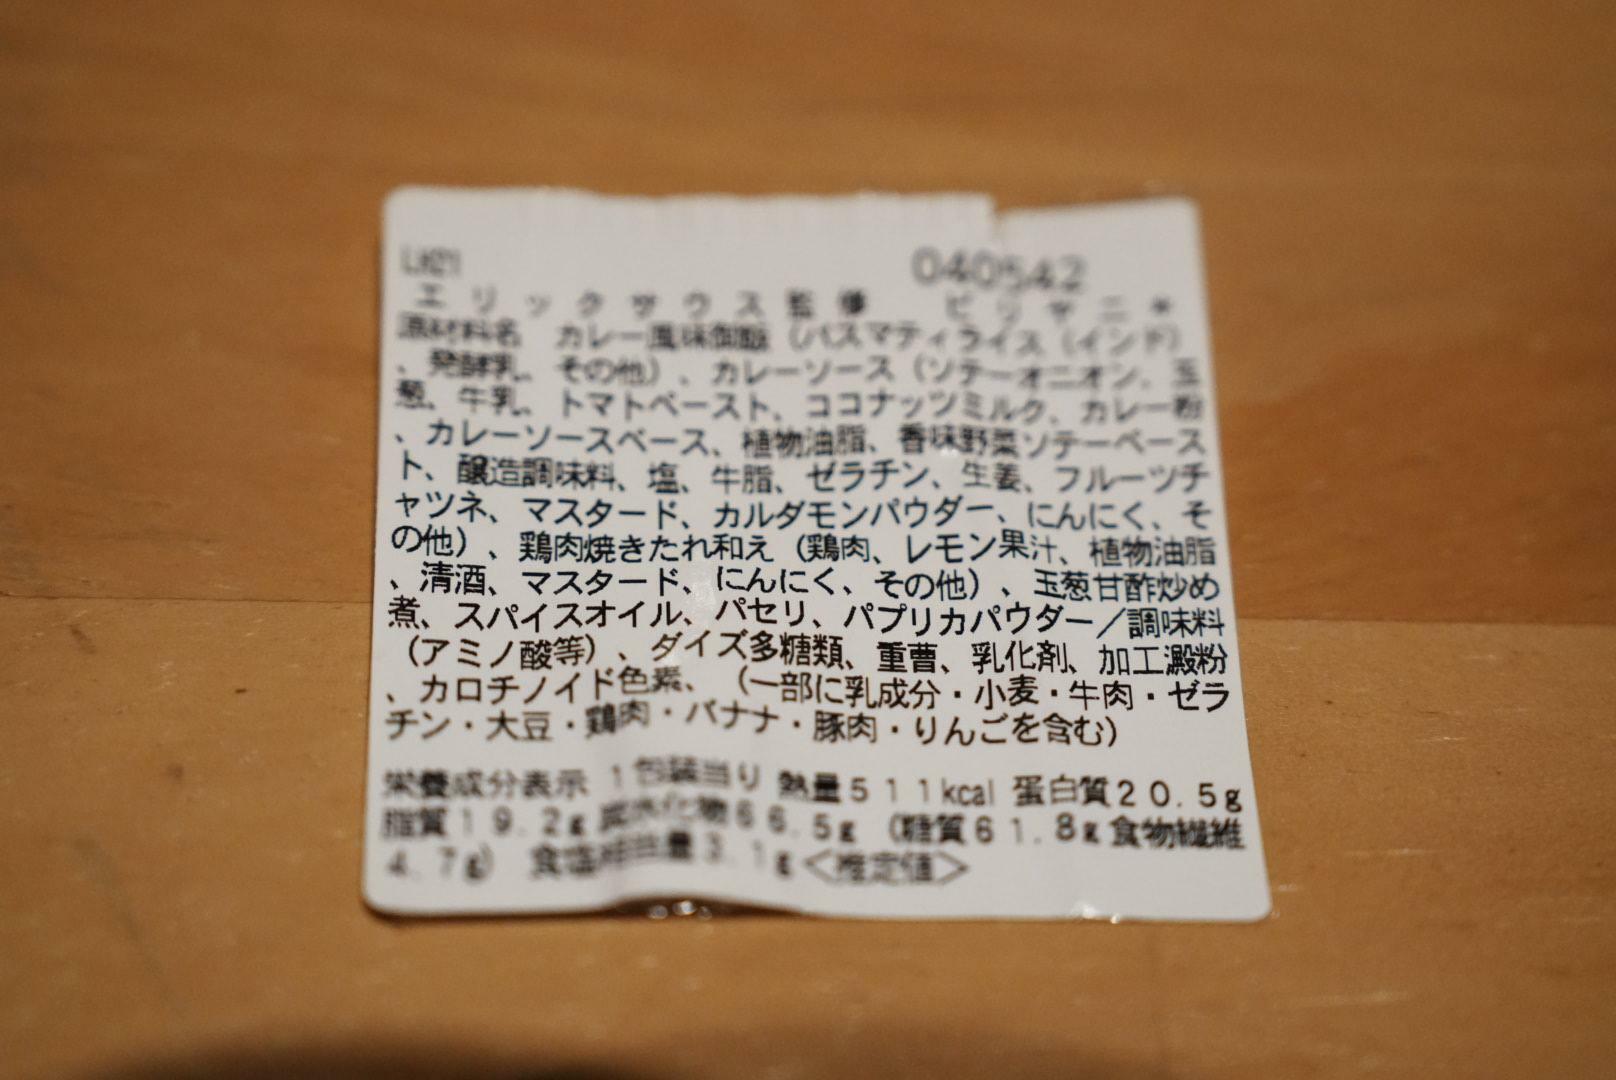 040542
エリックサウス監修 ビリヤニ*
原材料名 カレー風味御飯(バスマティライス(インド)
、発酵乳、その他)、カレーソース(ソテーオニオン、玉
葱、牛乳、トマトペースト、ココナッツミルク、カレー粉
、カレーソースベース、植物油脂、香味野菜ソテーペース
ト、醸造調味料、塩、牛脂、ゼラチン、生姜、フルーツチ
ャツネ、マスタード、カルダモンパウダー、にんにく、そ
の他)、鶏肉焼きたれ和え(鶏肉、レモン果汁、植物油脂
、清酒、マスタード、にんにく、その他)、玉葱甘酢炒め
煮、スパイスオイル、パセリ、パプリカパウダー/調味料
(アミノ酸等)、ダイズ多糖類、重曹、乳化剤、加工澱粉
、カロチノイド色素、(一部に乳成分・小麦・牛肉・ゼラ
チン・大豆・鶏肉・バナナ・豚肉・りんごを含む)
栄養成分表示 1包装当り 熱量511kcal 蛋白質20.5g
脂質19.2g 炭水化物66.5g (糖質61.8g 食物繊維
4.7g) 食塩相当量3.1g<推定値>